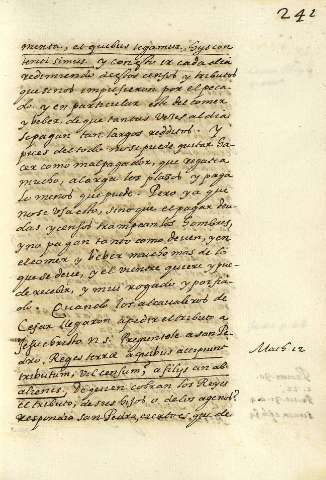 242
mensa, et quibus legamur. Sus con
tenti simus y con esto ir cada dia
redimiendo destos censos y tributos
que se nos impusieron por el peca
do y en particular este del comer
y beber, de que tantas veses al dia
se pagan tan largos redditos. Y
pues del todo no se puede quitar ha
cer como mal pagador, que regatea
mucho, alarga los plaços y paga
lo menos que puede. Pero ya que
no se usa esto, sino que el pagar deu
das y censos trampean los hombres,
y no pagan tanto como deuen, y en
el comer y beber mucho mas de lo
que se deve, y el vientre quiere y pue
de recebir, y mui rogado y porfia
do. Cuando los alcavaleros de
Cesar llegaron a pedir el tributo a
Jesuchristo n. s. Preguntole a san Pe
dro, Reges terræ a quibus accipiunt
tributum, vel censum? a filijs an ab
alienis, De quien cobran los Reyes
el tributo, de sus hijos o de los agenos?
Respondio san Pedro, es cierto que de
Math. 12